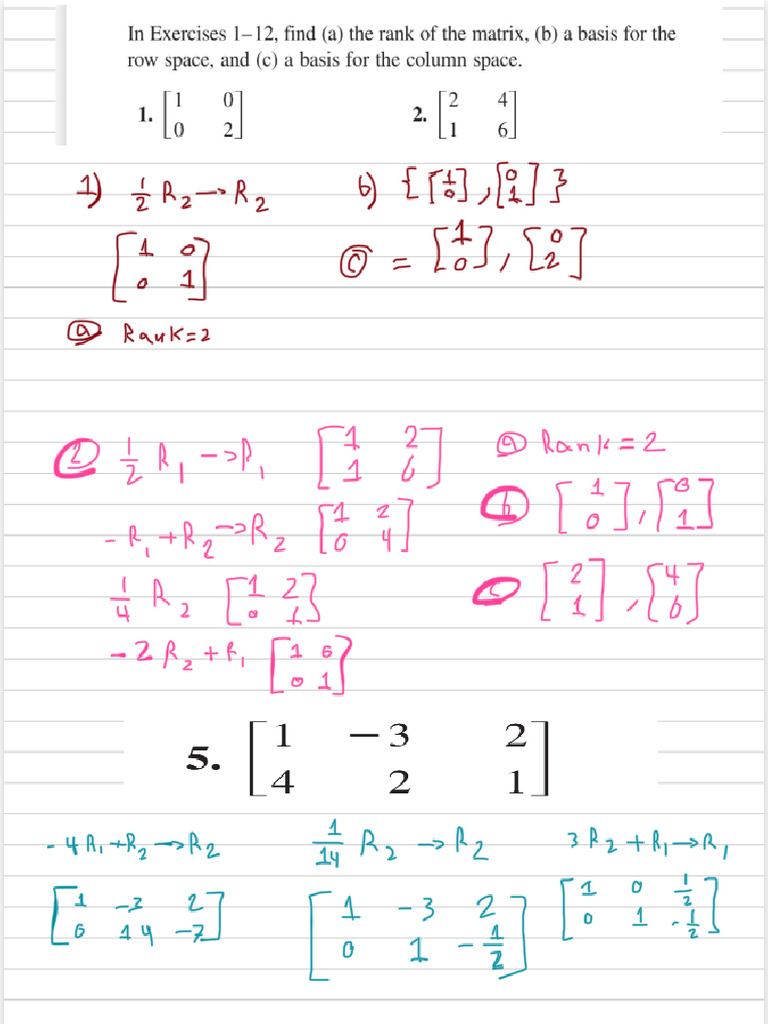 In Exercises 1–12, find (a) the rank of the matrix, (b) a basis for the
row space, and (c) a basis for the column space.
1. [1 0
0 2]
2. [2 4
1 6]
1) 1/2 R2 → R2
[1 0
0 1]
ⓐ Rank = 2
b) {[1
0], [0
1]}
ⓒ = [1
0], [0
2]
② 1/2 R1 → R1 [1 2
1 6]
-R1 + R2 → R2 [1 2
0 4]
1/4 R2 [1 2
0 1]
-2R2 + R1 [1 0
0 1]
ⓐ Rank = 2
ⓑ [1
0], [0
1]
ⓒ [2
1], [4
6]
5. [1 −3 2
4 2 1]
-4R1 + R2 → R2
[1 -3 2
0 14 -7]
1/14 R2 → R2
[1 -3 2
0 1 -1/2]
3R2 + R1 → R1
[1 0 1/2
0 1 -1/2]